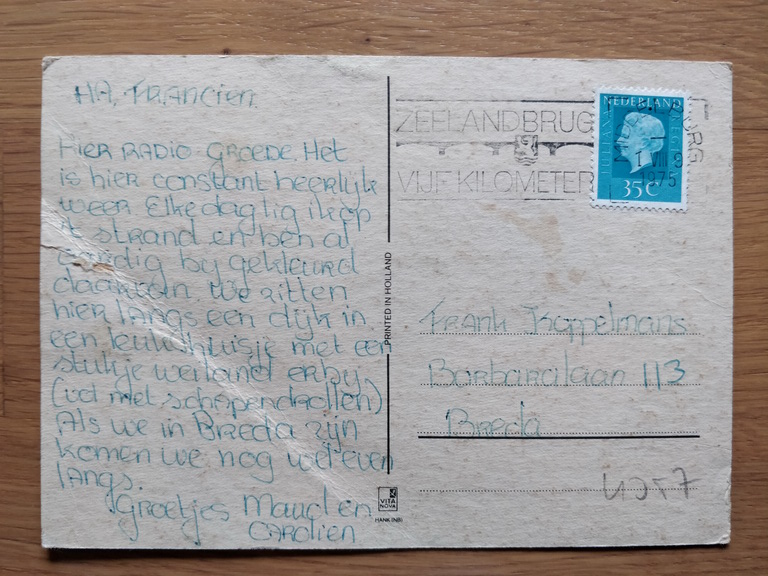 HA, FRANCIEN.
HIER RADIO GROEDE. Het
is hier constant heerlijk
weer Elke dag lig ik op
't strand en ben al
aardig bygekleurd
daarvan We zitten
hier langs een dijk in
een leuk huisje met een
stukje weiland erbij
(vol met schapendrollen)
Als we in Breda zijn
komen we nog wel even
langs.
Groetjes Maud en
CAROLIEN
PRINTED IN HOLLAND
VITA
NOVA
HANK (NB)
ZEELANDBRUG
VIJF KILOMETER
NEDERLAND
35C
1 VIII 8
1975
Frank Koppelmans
Barbaralaan 113
Breda